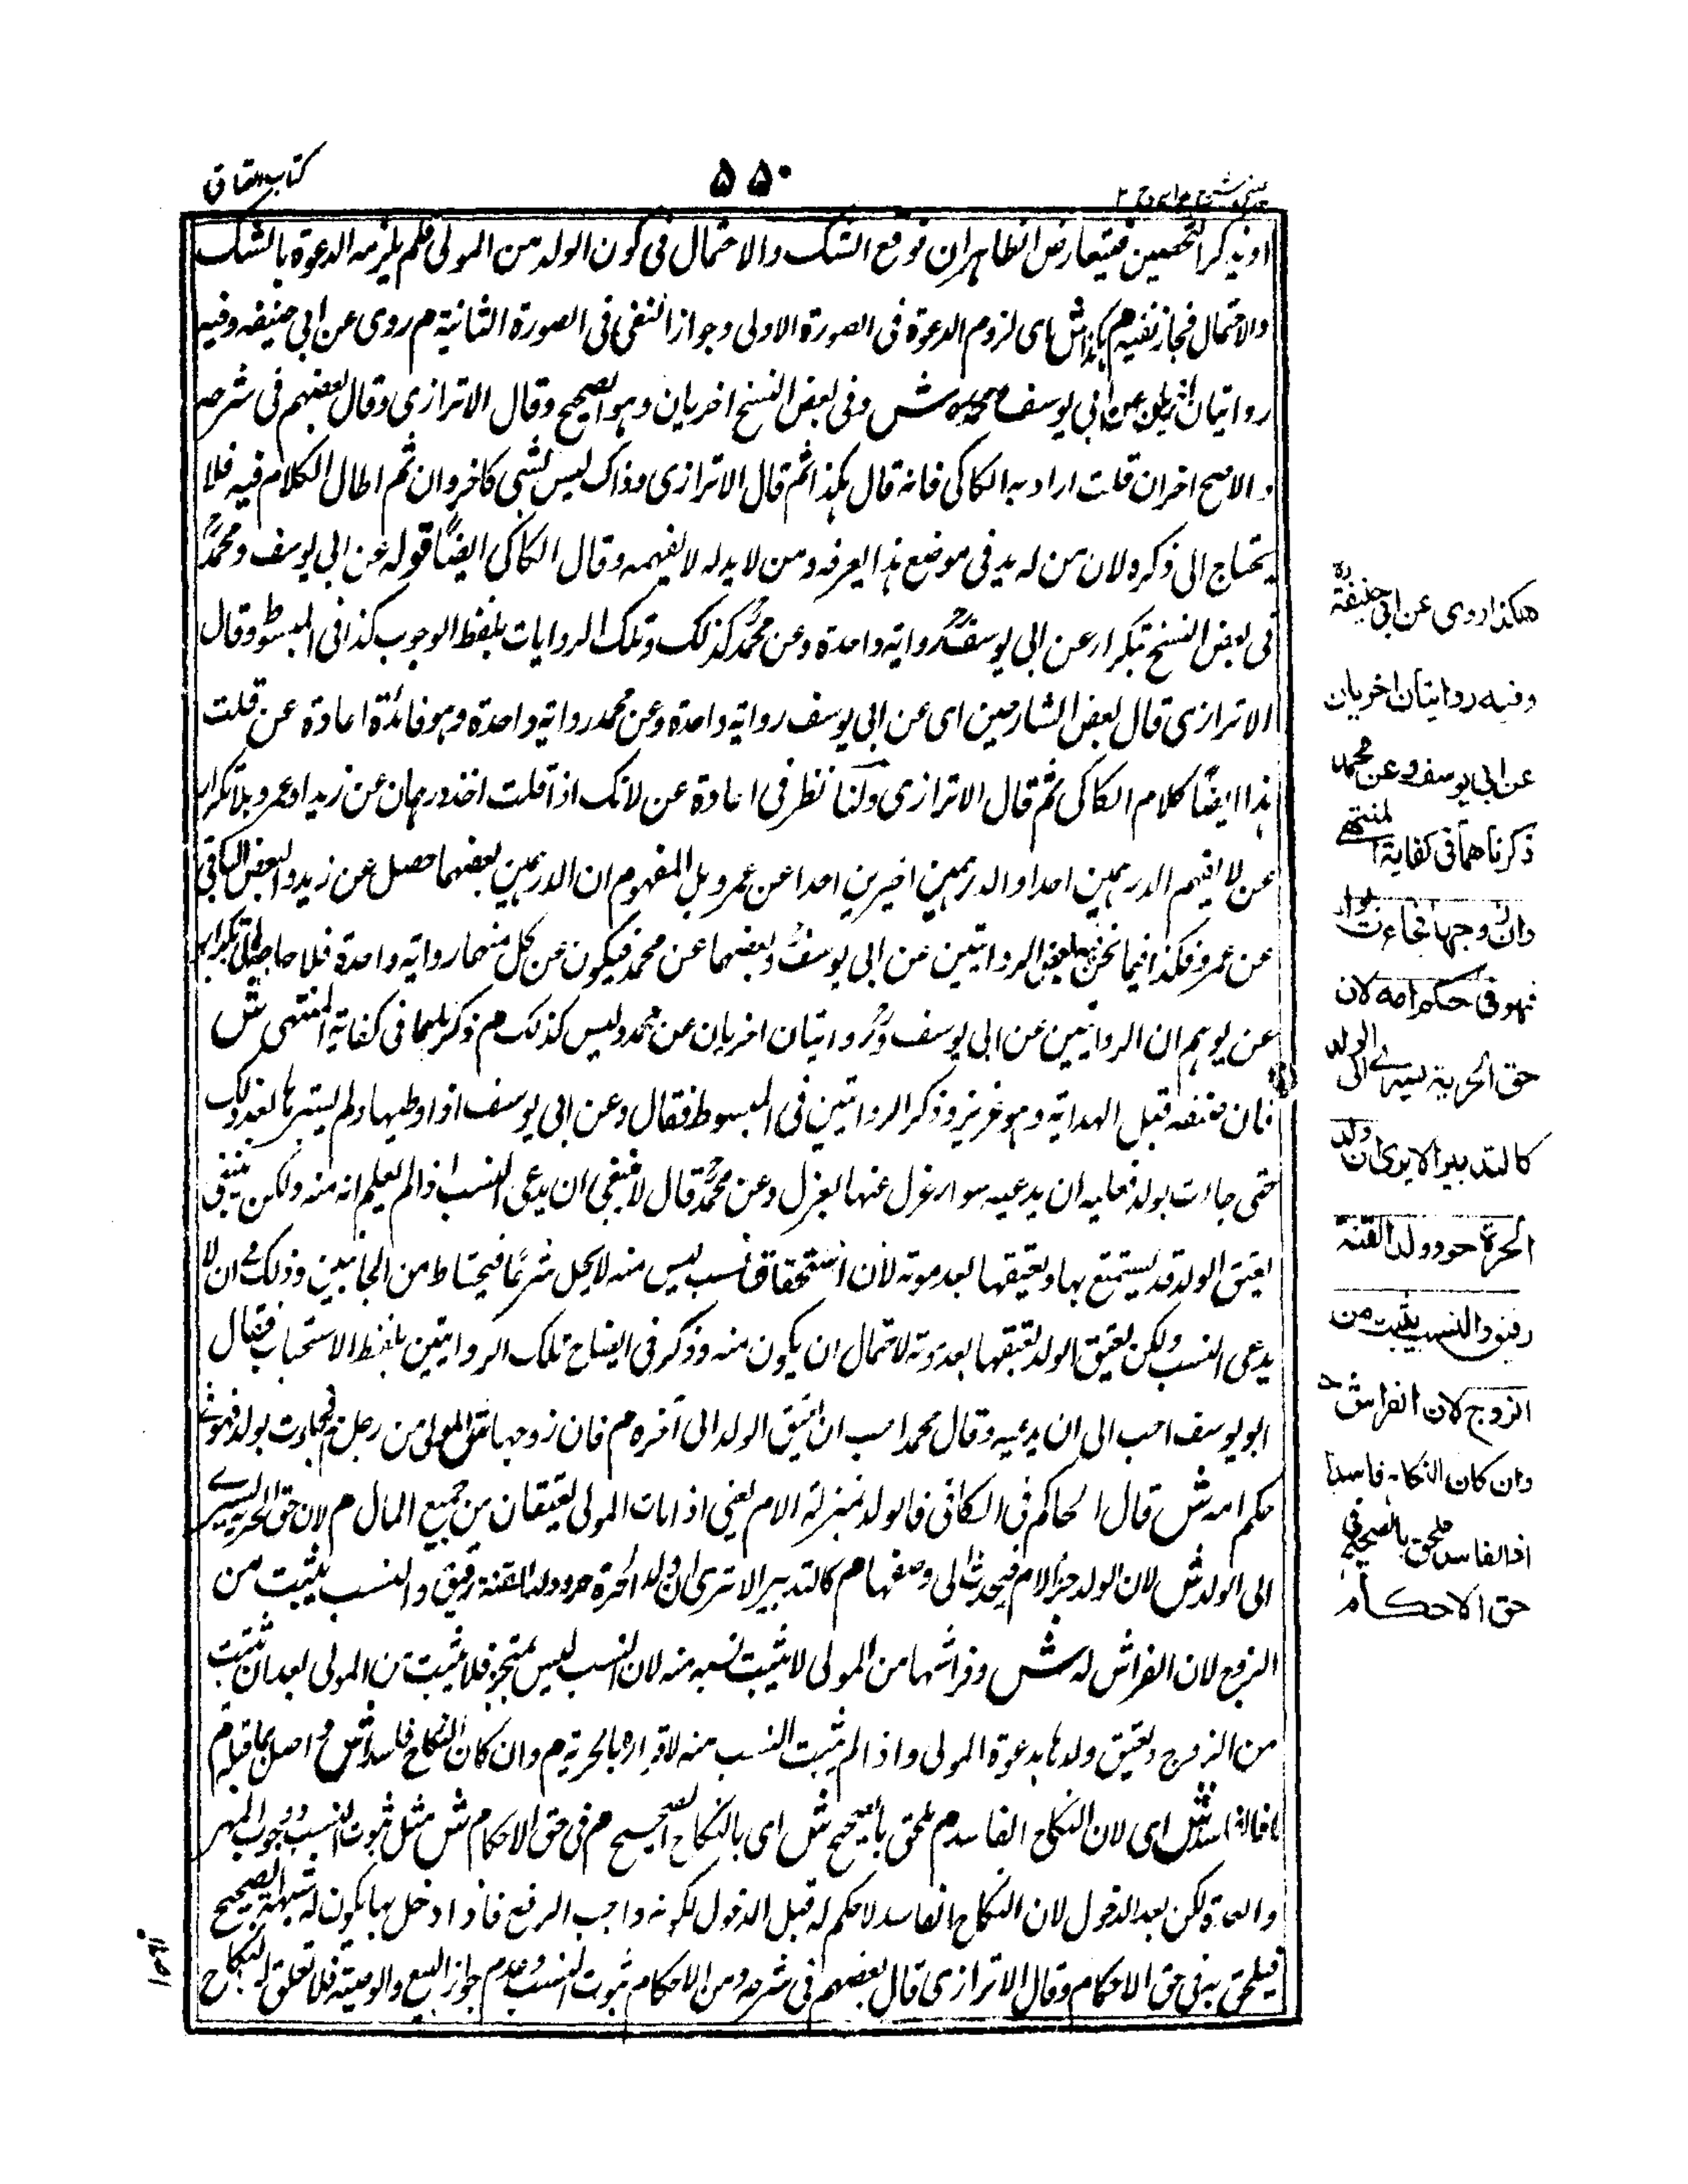 عینی شرح ہدایہ ج ۲
۵۵۰
کتاب العتاق
او بذكر التحصين فيتعارض الظاهران فوقع الشك والاحتمال فى كون الولد من المولى فلم يلزمه الدعوة بالشك
والاحتمال فجاز نفيه م هكذا ش اى لزوم الدعوة فى الصورة الاولى وجواز النفى فى الصورة الثانية م روى عن ابى حنيفه وفيه
روايتان اخريان عن ابى يوسف ومحمد ش وفى بعض النسخ اخريان وهو الصحيح وقال الاترازى وقال بعضهم فى شرحه
والاصح اخران قلت اراد به الكاكى فانه قال هكذا ثم قال الاترازى وذاك ليس بشئ كاخروان ثم اطال الكلام فيه فلا
يحتاج الى ذكره لان من له يد فى موضع هذا يعرفه ومن لا يد له لا يفهمه وقال الكاكى ايضًا قوله عن ابى يوسف ومحمدؒ
فى بعض النسخ بتكرار عن ابى يوسفؒ رواية واحدة وعن محمدؒ كذلك وتلك الروايات بلفظ الوجوب كذا فى المبسوط وقال
الاترازى قال بعض الشارحين اى عن ابى يوسف رواية واحدة وعن محمد رواية واحدة وهو فائدة اعادة عن قلت
هذا ايضًا كلام الكاكى ثم قال الاترازى ولنا نظر فى اعادة عن لانك اذا قلت اخذ درهمان عن زيد او عمرو بلا تكرار
عن لا يفهم الدرهمين احدا والدرهمين اخيرين احدا عن عمرو بل المفهوم ان الدرهمين بعضهما حصل عن زيد والبعض الباقى
عن عمرو فكذا فيما نحن فيه بعض الروايتين عن ابى يوسفؒ وبعضهما عن محمد فيكون عن كل منهما رواية واحدة فلا حاجة الى تكرار
عن يوهم ان الروايتين عن ابى يوسف وروايتان اخريان عن محمد وليس كذلك م ذكرناهما فى كفاية المنتهى ش
فان مصنفه قبل الهداية وهو عزيز وذكر الروايتين فى المبسوط فقال وعن ابى يوسف اذا وطيها ولم يستبرئها بعد ذلك
حتى جاءت بولد فعليه ان يدعيه سواء عزل عنها او لم يعزل وعن محمدؒ قال لا ينبغى ان يدعى النسب اذا لم يعلم انه منه ولكن ينبغى
يعتق الولد قد يستمتع بها ويعتقها بعد موته لان استحقاق نسب ليس منه لا يحل شرعًا فيحتاط من الجانبين وذلك فى ان لا
يدعى النسب ولكن يعتق الولد ويعتقها بعد موته لاحتمال ان يكون منه وذكر فى ايضاح تلك الروايتين بلفظ الاستحباب فقال
ابو يوسف احب الى ان يدعيه وقال محمد احب ان يعتق الولد الى آخره م فان زوجها ش المولى من رجل م فجاءت بولد فهو فى
حكم امه ش قال الحاكم فى الكافى فالولد بمنزلة الام يعنى اذا مات المولى يعتقان من جميع المال م لان حق الحرية يسرى
الى الولد ش لان الولد جزء الام فيحدث الى وصفها م كالتدبير الا ترى ان ولد الحرة حر وولد القنة رقيق والنسب يثبت من
الزوج لان الفراش له ش وفراشها من المولى لا يثبت نسبه منه لان النسب ليس بمتجز فلا يثبت من المولى بعد ان يثبت
من الزوج ويعتق ولدها بدعوة المولى واذا لم يثبت النسب منه لاقراره بالحرية م وان كان النكاح فاسدا ش واصل بما قبله م
اذ الفاسد ش اى لان النكاح الفاسد م ملحق بالصحيح ش اى بالنكاح الصحيح م فى حق الاحكام ش مثل ثبوت النسب ووجوب المهر
والعدة لكن بعد الدخول لان النكاح الفاسد لا حكم له قبل الدخول لكونه واجب الرفع فاذا دخل بها يكون له شبهة الصحيح
فيلحق به فى حق الاحكام وقال الاترازى قال بعضهم فى شرحه ومن الاحكام ثبوت النسب وعدم جواز البيع والوصية فلا تعلق للنكاح
هكذا روى عن ابى حنيفةؒ
وفيه روايتان اخريان
عن ابى يوسف وعن محمد
ذكرناهما فى كفاية المنتهى
وان زوجها فجاءت بولد
فهو فى حكم امه لان
حق الحرية يسرى الى الولد
كالتدبير الا يرى ان ولد
الحرة حر وولد القنة
رقيق والنسب يثبت من
الزوج لان الفراش له
وان كان النكاح فاسدا
اذ الفاسد ملحق بالصحيح فى
حق الاحكام